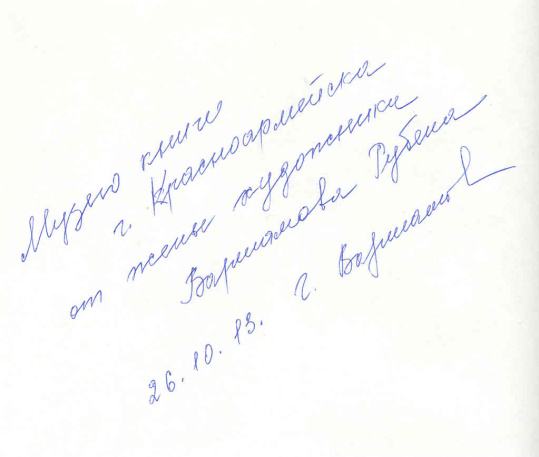 Музею книги
г. Красноармейска
от жены художника
Варшамова Рубена
26.10.13. Г. Варшамов